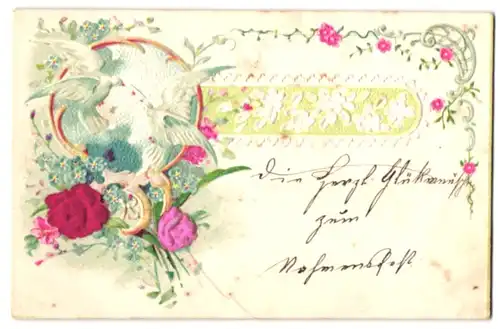 Die herzl. Glükwünsche
zum
Nahmensfest